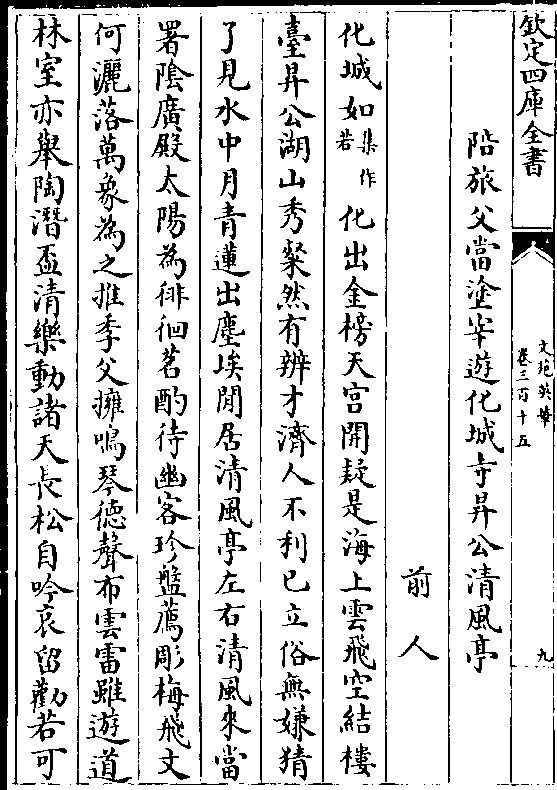 欽定四庫全書
文苑英華
卷三百十五
九
陪旅父當塗宰遊化城寺昇公清風亭
前人
化城如集作若化出金榜天宫開疑是海上雲飛空結樓
臺昇公湖山秀粲然有辨才濟人不利已立俗無嫌猜
了見水中月青蓮出塵埃閒居清風亭左右清風來當
署陰廣殿太陽為徘徊茗酌待幽客珍盤薦彫梅飛文
何灑落萬象為之推季父擁鳴琴徳聲布雲雷雖遊道
林室亦舉陶潛盃清樂動諸天長松自吟哀留勸若可